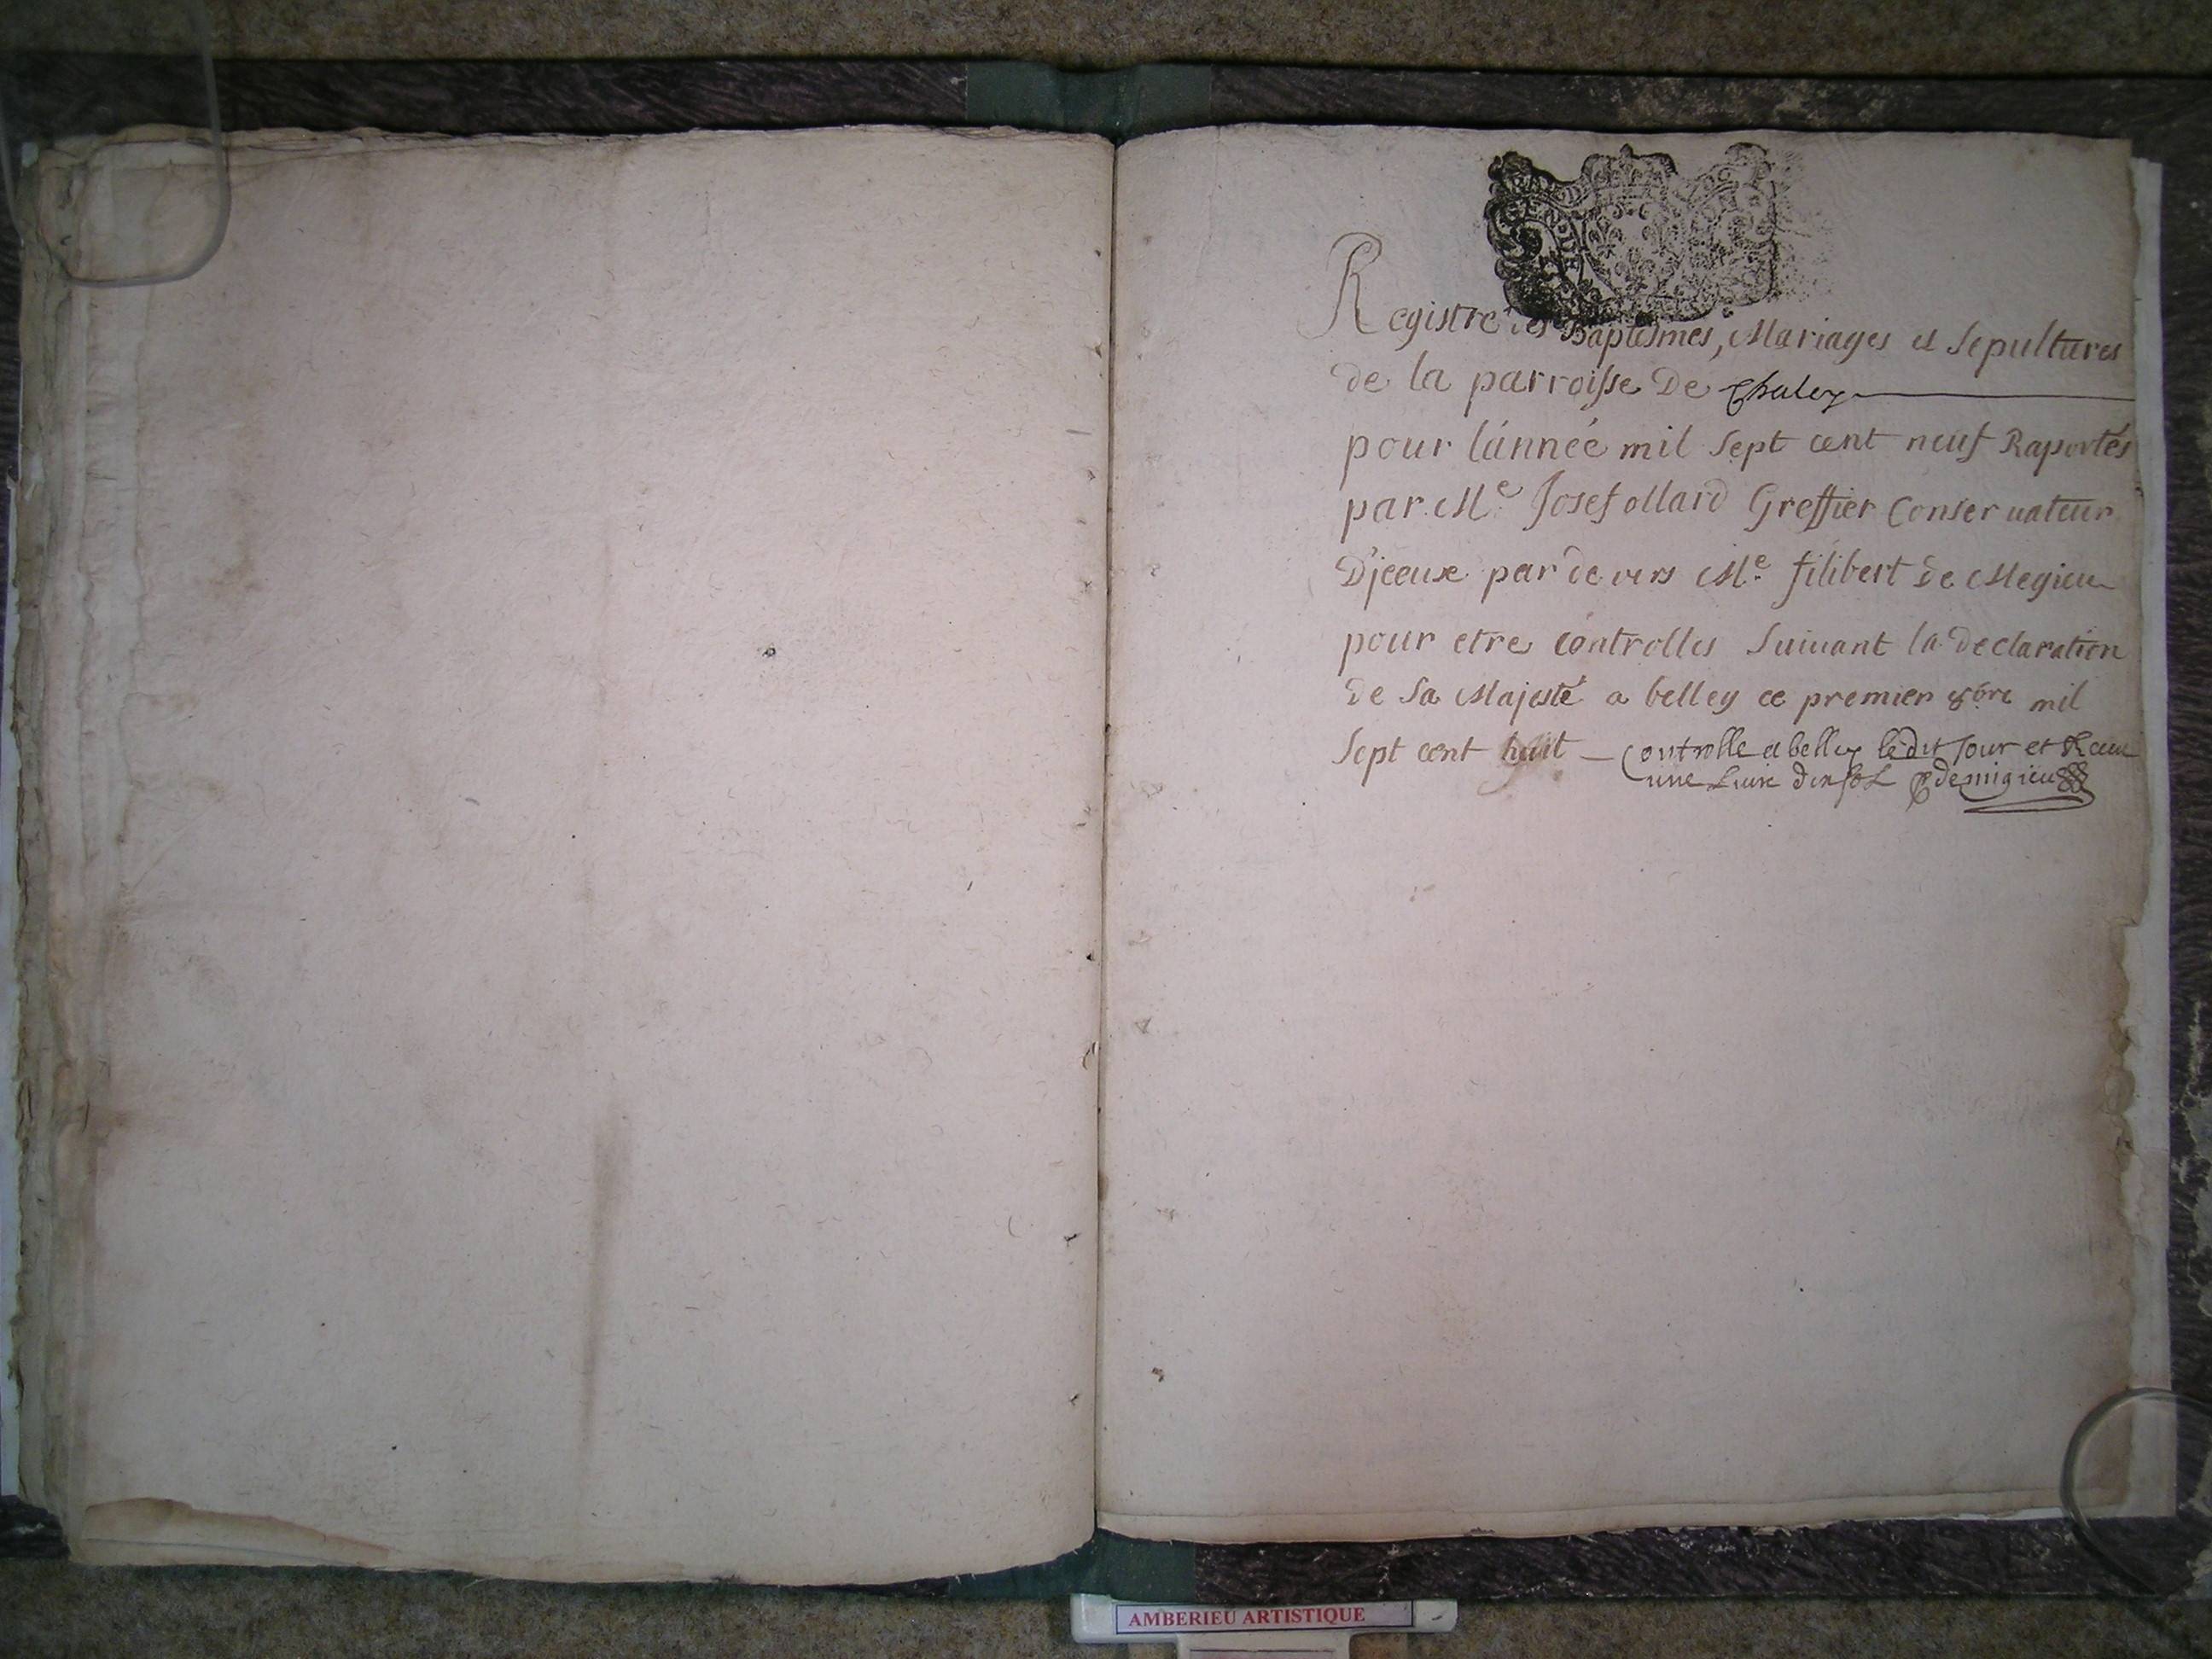 Registre des Baptesmes, Mariages et Sepultures
de la parroisse De Chaley
pour lánneé mil Sept cent neuf Raportés
par Me Josef ollard Greffier Conservateur
D'jceux par devers Me filibert de Megieu
pour etre controlles Suivant la declaration
de Sa Majesté a belley ce premier 8bre mil
Sept cent huit — Controlle a belley ledit Jour et Receu
une Livre dix sol demigieu
AMBERIEU ARTISTIQUE